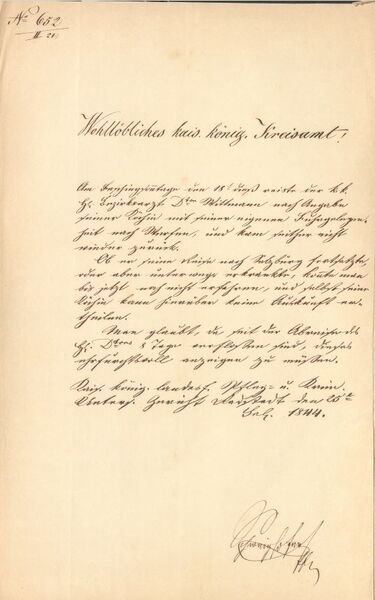 No 652
II 21
Wohllöbliches kais. könig. Kreisamt!
Am Faschingsontage den 18t dieß reiste der k.k.
H: Bezirksarzt Dtor Wittmann nach Angabe
seiner Köchin mit seiner eigenen Fuhrgelegen-
heit nach Werfen, und kam seither nicht
wieder zurück.
Ob er seine Reise nach Salzburg fortsetzte,
oder aber unterwegs erkrankte, konnte man
bis jetzt noch nicht erfahren, und selbst seine
Köchin kann hierüber keine Auskünfte er-
theilen.
Man glaubt, da seit der Abreise des
H: Dtors 8 Tage verflossen sind, dieses
ehrfurchtsvoll anzeigen zu müssen.
Kais. könig. landesf. Pfleg- u. Krim.
Unters. Gericht Radstadt den 26t
Feb. 1844.